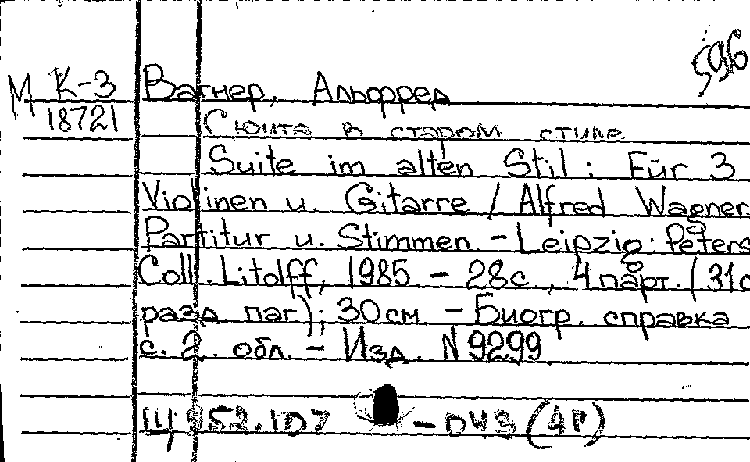 596
М К-3 Вагнер, Альфред
18721 Сюита в старом стиле
Suite im alten Stil : Für 3
Violinen u. Gitarre / Alfred Wagner
Partitur u. Stimmen. – Leipzig : Peters
Coll. Litolff, 1985 – 28с., 4 парт. (31с
разд. паг); 30 см – Биогр. справка
с. 2 обл. – Изд. N 9299
Щ 952.107 – 043 (4Г)